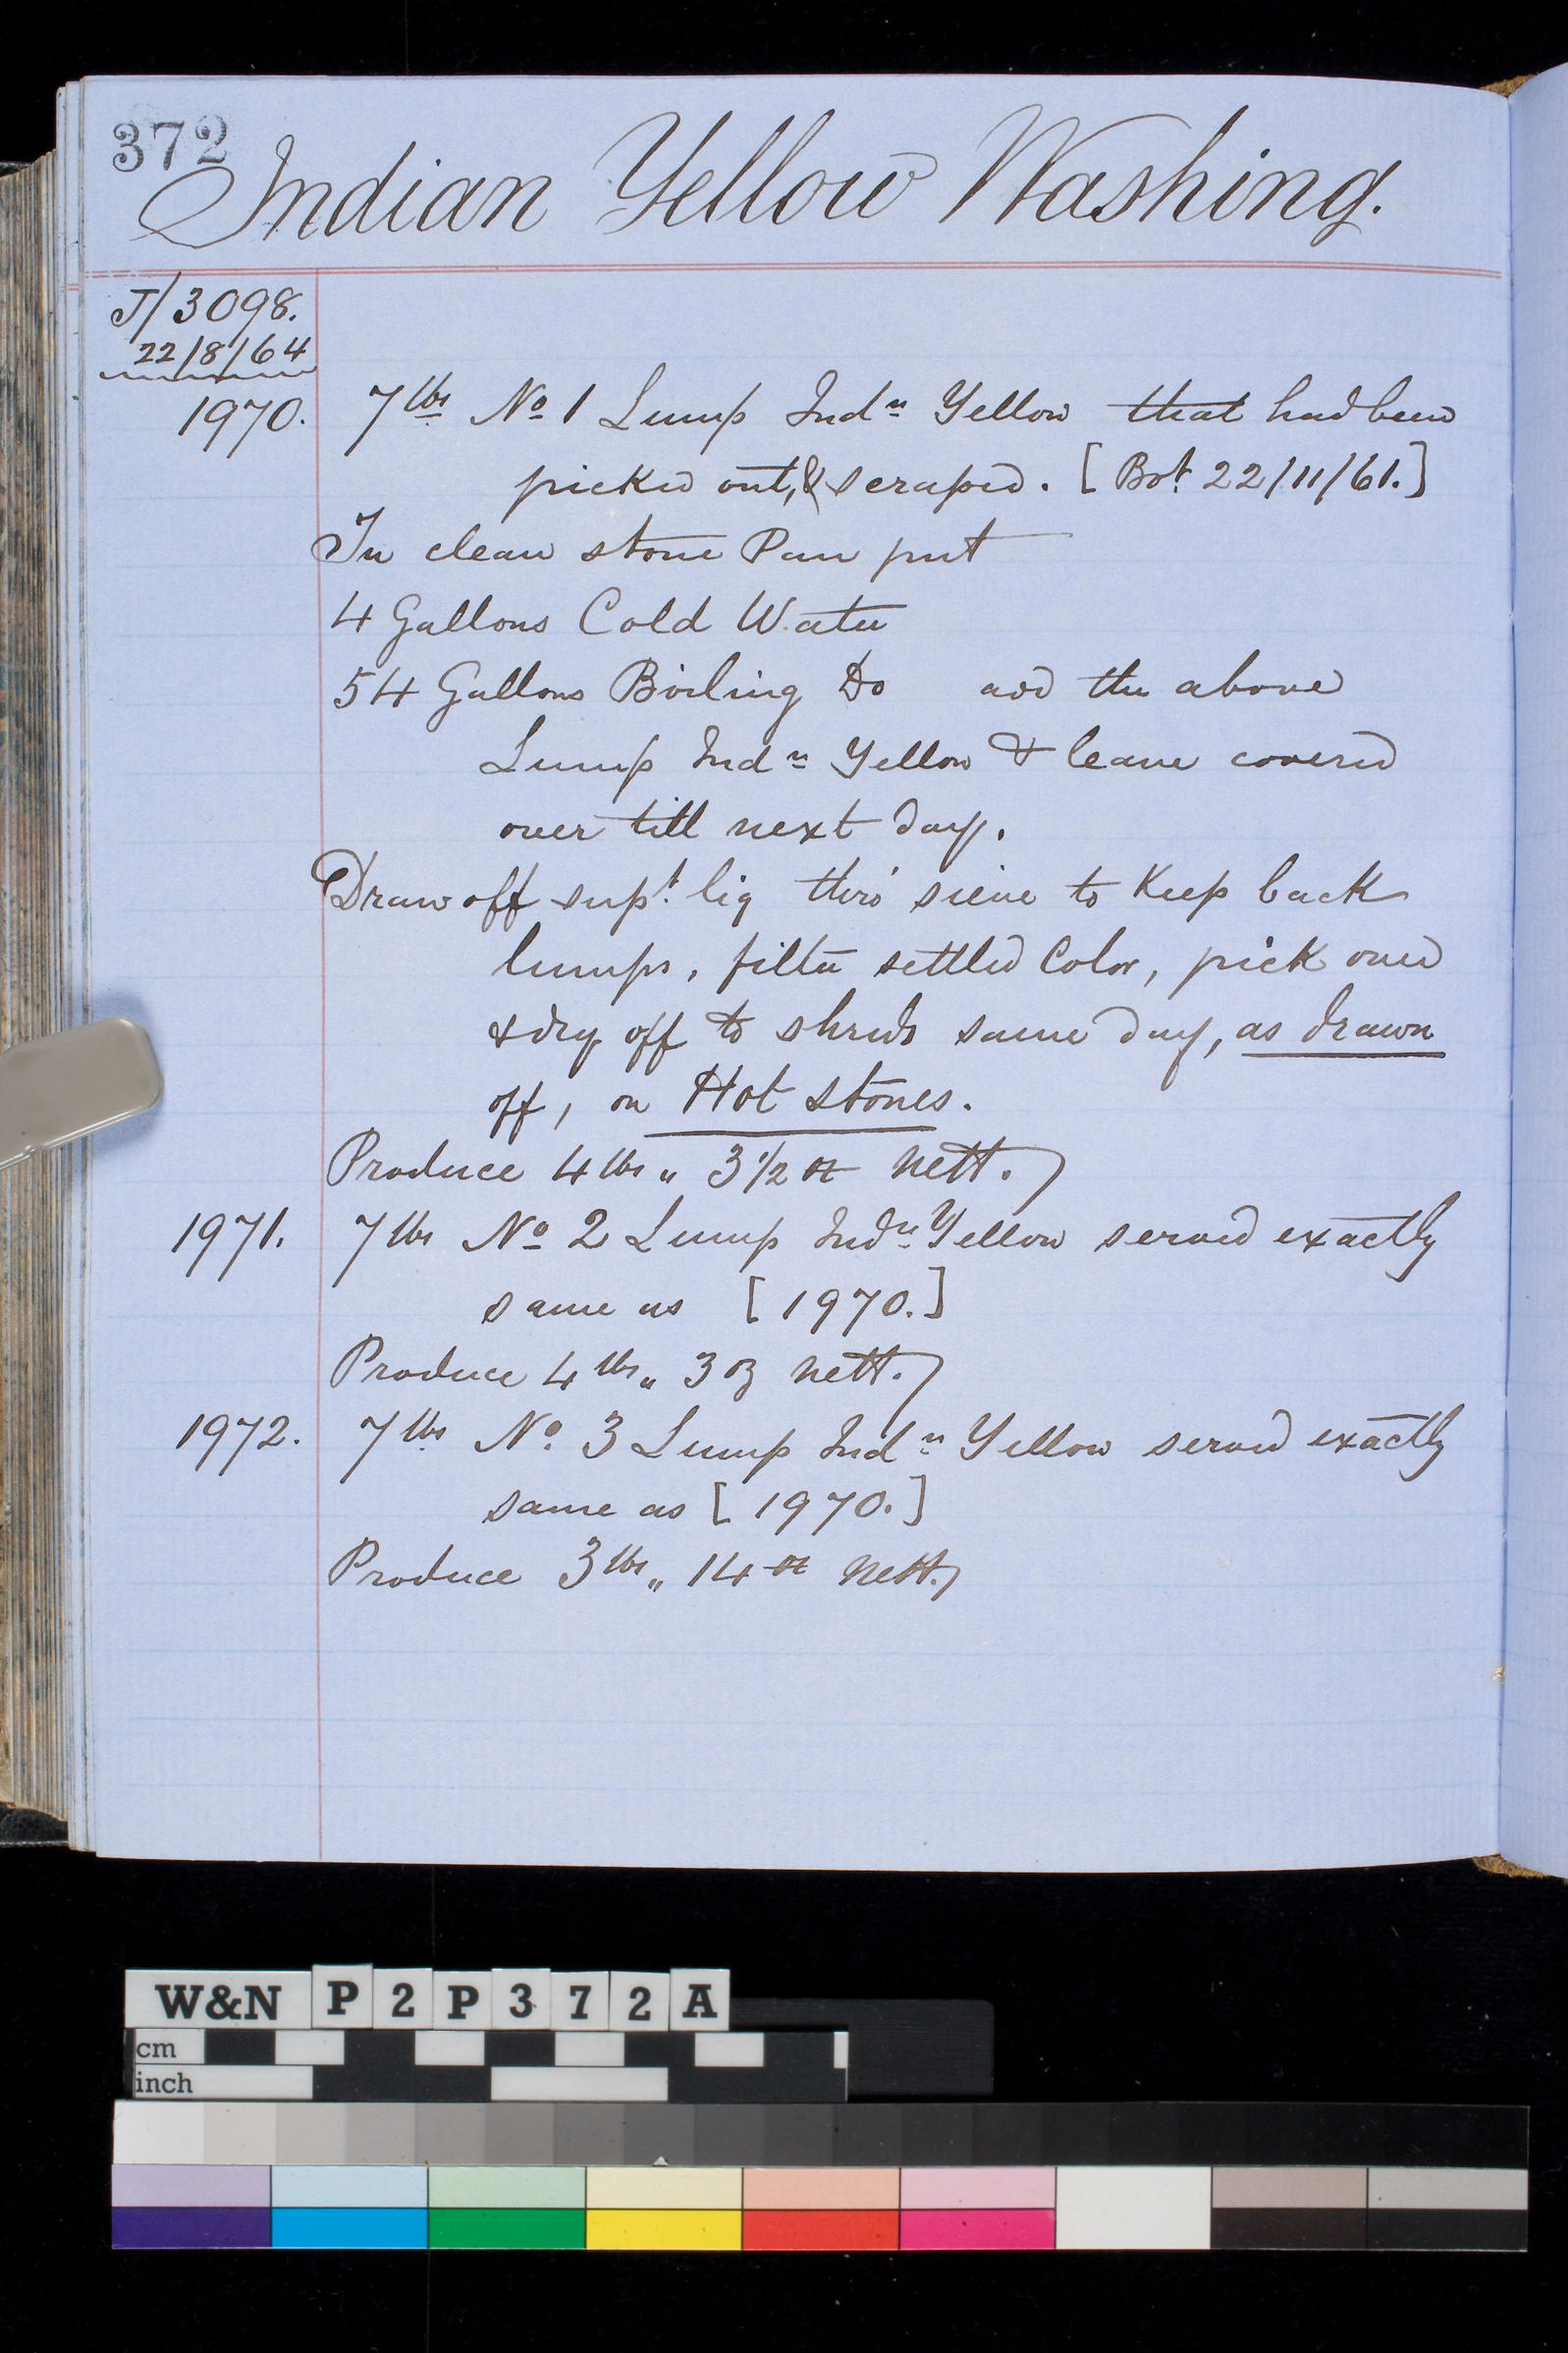 372
Indian Yellow Washing.
J/3098.
22/8/64
1970. 7 lbs No 1 Lump Indn Yellow that had been
picked out, & scraped. [Bot. 22/11/61.]
In clean stone Pan put
4 Gallons Cold Water
54 Gallons Boiling Do add the above
Lump Indn Yellow & leave covered
over till next day.
Draw off supt. liq thro' sieve to Keep back
lumps, filter settled Color, pick over
& dry off to shreds same day, as drawn
off, on Hot stones.
Produce 4 lbs " 3 1/2 oz nett.
1971. 7 lbs No 2 Lump Indn Yellow served exactly
same as [1970.]
Produce 4 lbs " 3 oz nett.
1972. 7 lbs No. 3 Lump Indn Yellow served exactly
same as [1970.]
Produce 3 lbs " 14 oz nett.
W&N P2P372A
cm
inch